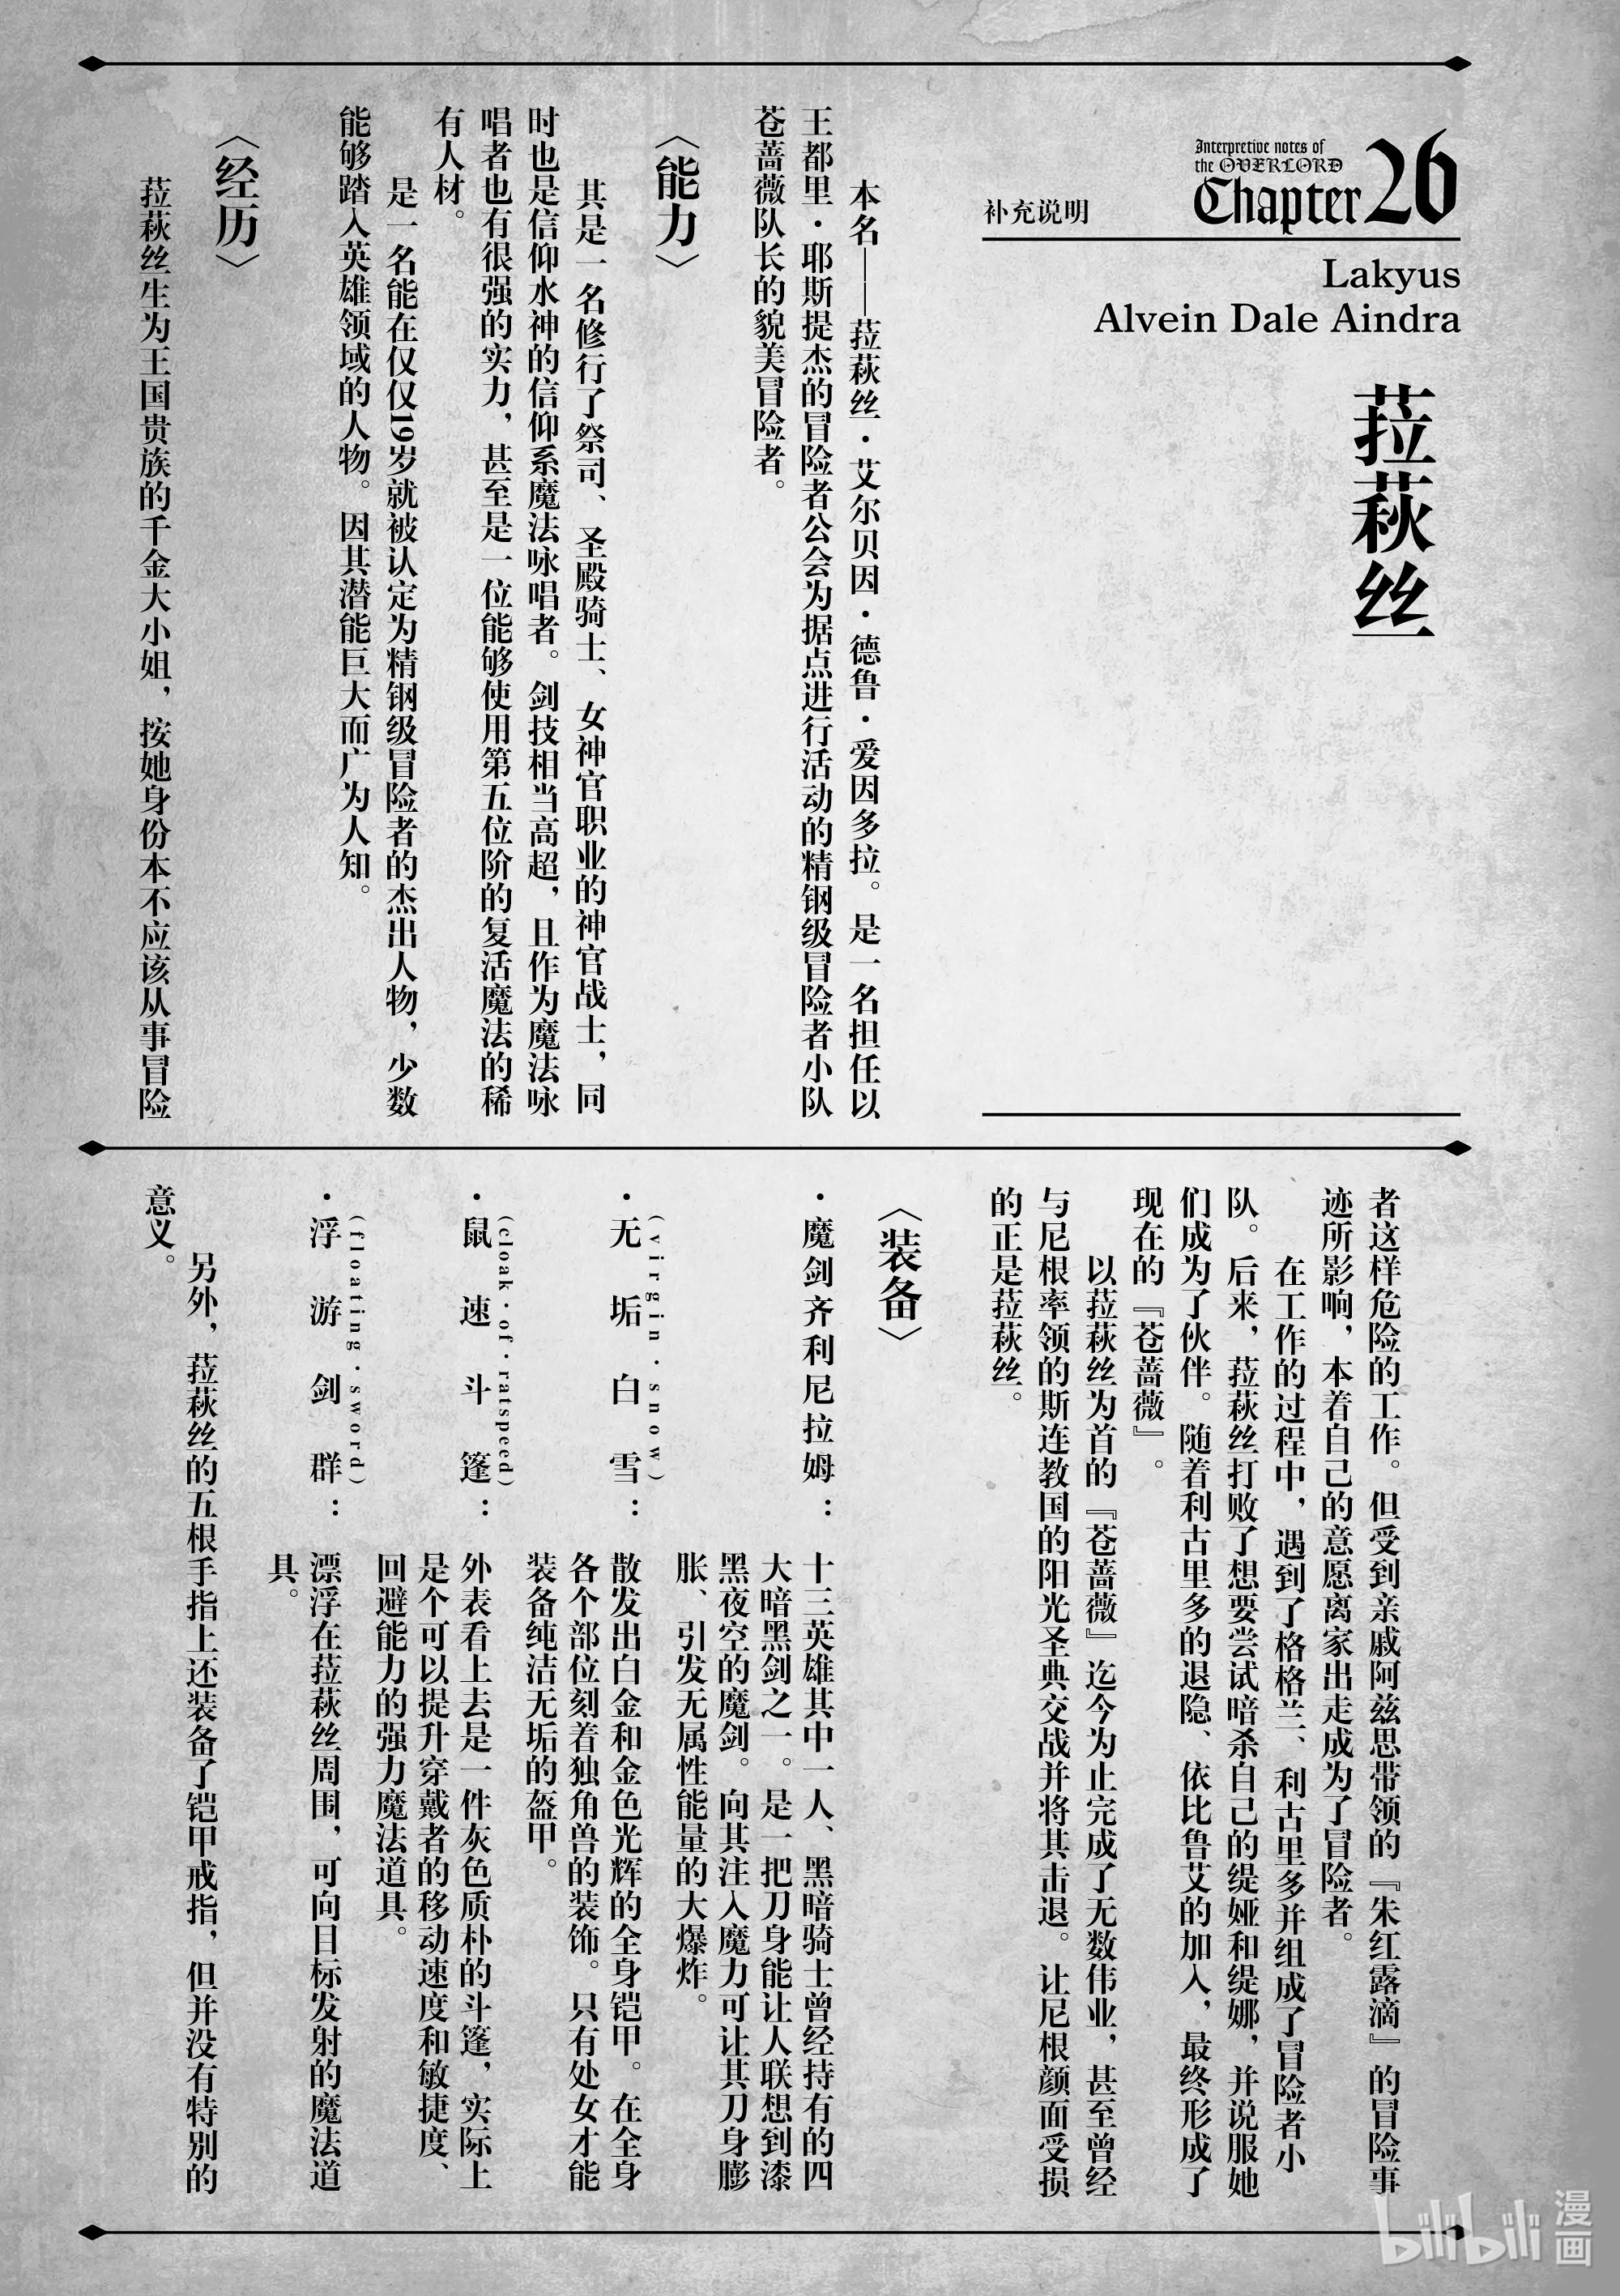 Interpretive notes of
the OVERLORD
Chapter 26
补充说明
Lakyus
Alvein Dale Aindra
菈萩丝
本名——菈萩丝·艾尔贝因·德鲁·爱因多拉。是一名担任以
王都里·耶斯提杰的冒险者公会为据点进行活动的精钢级冒险者小队
苍蔷薇队长的貌美冒险者。
〈能力〉
其是一名修行了祭司、圣殿骑士、女神官职业的神官战士，同
时也是信仰水神的信仰系魔法咏唱者。剑技相当高超，且作为魔法咏
唱者也有很强的实力，甚至是一位能够使用第五位阶的复活魔法的稀
有人材。
是一名能在仅仅19岁就被认定为精钢级冒险者的杰出人物，少数
能够踏入英雄领域的人物。因其潜能巨大而广为人知。
〈经历〉
菈萩丝生为王国贵族的千金大小姐，按她身份本不应该从事冒险
者这样危险的工作。但受到亲戚阿兹思带领的『朱红露滴』的冒险事
迹所影响，本着自己的意愿离家出走成为了冒险者。
在工作的过程中，遇到了格格兰、利古里多并组成了冒险者小
队。后来，菈萩丝打败了想要尝试暗杀自己的缇娅和缇娜，并说服她
们成为了伙伴。随着利古里多的退隐、依比鲁艾的加入，最终形成了
现在的『苍蔷薇』。
以菈萩丝为首的『苍蔷薇』迄今为止完成了无数伟业，甚至曾经
与尼根率领的斯连教国的阳光圣典交战并将其击退。让尼根颜面受损
的正是菈萩丝。
〈装备〉
·魔剑齐利尼拉姆：
十三英雄其中一人、黑暗骑士曾经持有的四
大暗黑剑之一。是一把刀身能让人联想到漆
黑夜空的魔剑。向其注入魔力可让其刀身膨
胀、引发无属性能量的大爆炸。
(virgin·snow)
·无垢白雪：
散发出白金和金色光辉的全身铠甲。在全身
各个部位刻着独角兽的装饰。只有处女才能
装备纯洁无垢的盔甲。
(cloak·of·ratspeed)
·鼠速斗篷：
外表看上去是一件灰色质朴的斗篷，实际上
是个可以提升穿戴者的移动速度和敏捷度、
回避能力的强力魔法道具。
(floating·sword)
·浮游剑群：
漂浮在菈萩丝周围，可向目标发射的魔法道
具。
另外，菈萩丝的五根手指上还装备了铠甲戒指，但并没有特别的
意义。
bilibili
漫画